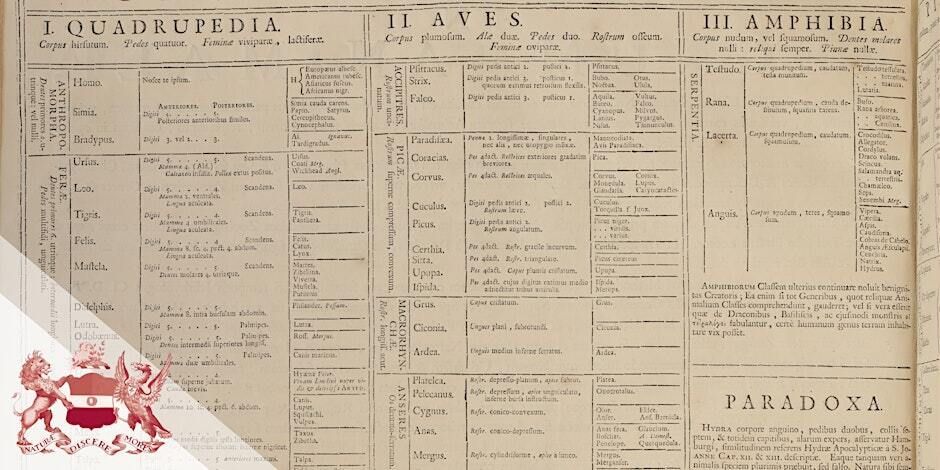 I. QUADRUPEDIA.
Corpus hirsutum. Pedes quatuor. Feminæ viviparæ, lactiferæ.
ANTHROPO-
MORPHA.
Homo. Nosce te ipsum.
H
Europæus albesc.
Americanus rubesc.
Asiaticus fuscus.
Africanus nigr.
Simia. ANTERIORES. POSTERIORES.
Digiti 5. . . . . 5.
Posteriores anterioribus similes.
Simia cauda carens.
Papio. Satyrus.
Cercopithecus.
Cynocephalus.
Bradypus. Digiti 3. vel 2. . . 3.
Ai. Ignavus.
Tardigradus.
FERÆ.
Ursus. Digiti 5. . . . . 5. Scandens.
Mammæ 4. (Ald.)
Calcaneis insistit. Pollex extus positus.
Ursus.
Coati Mrg.
Wickhead Angl.
Leo. Digiti 5. . . . . 4. Scandens.
Mammæ 2. ventrales.
Lingua aculeata.
Leo.
Tigris. Digiti 5. . . . . 4. Scandens.
Mammæ 4 umbilicales.
Lingua aculeata.
Tigris.
Panthera.
Felis. Digiti 5. . . . . 4. Scandens.
Mammæ 8. sc. 4. pect. 4. abdom.
Lingua aculeata.
Felis.
Catus.
Lynx.
Mustela. Digiti 5. . . . . 5. Scandens.
Dentes molares 4. utrinque.
Martes.
Zibellina.
Viverra.
Mustela.
Putorius.
Didelphis. Digiti 5. . . . . 5.
Mammæ 8. intra bursulam abdomin.
Philander. Possum.
Lutra. Digiti 5. . . . . 5. Palmipes.
Lutra.
Odobænus. Digiti 5. . . . . 5. Palmipes.
Dentes intermedii superiores longiss.
Ross. Morsus.
Palmipes.
Mammæ duæ umbilicales.
Canis marinus.
Canis.
Lupus.
Squillachi.
Vulpes.
Taxus.
Zibetha.
Talpa.
NATURÆ DISCERE MORES
II. AVES.
Corpus plumosum. Alæ duæ. Pedes duo. Rostrum osseum.
Feminæ oviparæ.
ACCIPITRES.
Rostrum uncinatum.
Psittacus. Digiti pedis antici 2. postici 2.
Psittacus.
Strix. Digiti pedis antici 3. postici 1.
quorum extimus retrorsum flexilis.
Bubo. Otus.
Noctua. Ulula.
Falco. Digiti pedis antici 3. posticus 1.
Aquila. Vultur.
Buteo. Falco.
Cyanus. Milvus.
Lanius. Pygargus.
Nisus. Tinnunculus.
PICÆ.
Rostrum superne compressum, convexum.
Paradisæa. Pennæ 2. longissimæ, singulares,
nec alis, nec uropygio infixæ.
Manucodiata.
Avis Paradisiaca.
Coracias. Pes 4dact. Rectrices exteriores gradatim
breviores.
Pica.
Corvus. Pes 4dact. Rectrices æquales.
Corvus. Cornix.
Monedula. Lupus.
Glandaria. Caryocatactes.
Cuculus. Digiti pedis antici 2. postici 2.
Rostrum læve.
Cuculus.
Torquilla f. Jynx.
Picus. Digiti pedis antici 2.
Rostrum angulatum.
Picus niger.
. . viridis.
. . varius.
Certhia. Pes 4dact. Rostr. gracile incurvum.
Certhia.
Sitta. Pes 4dact. Rostr. triangulare.
Picus cinereus
Upupa. Pes 4dact. Caput plumis cristatum.
Upupa.
Ispida. Pes 4dact. cujus digitus extimus medio
adnectitur tribus articulis.
Ispida.
Merops.
MACRORHYN-
CHÆ.
Rostr. longiss. acut.
Grus. Caput cristatum.
Grus.
Ciconia. Ungues plani, subrotundi.
Ciconia.
Ardea. Unguis medius inferne serratus.
Ardea.
ANSERES.
Platelea. Rostr. depresso-planum, apice subrot.
Platea.
Pelecanus. Rostr. depressum, apice unguiculato,
inferne bursa instructum.
Onocrotalus.
Cygnus. Rostr. conico-convexum.
Olor. Eider.
Anser. Ans. Bernicla.
Anas. Rostr. conico-depressum.
Anas fera. Glaucium.
Boschas.
Penelope. Querquedula.
Mergus. Rostr. cylindriforme, apice adunco.
Mergus.
Merganser.
III. AMPHIBIA.
Corpus nudum, vel squamosum. Dentes molares
nulli: reliqui semper. Pinnæ nullæ.
SERPENTIA.
Testudo. Corpus quadrupedium, caudatum,
testa munitum.
Testudo tessulata.
. . terrestris.
. . marina.
Lutaria.
Rana. Corpus quadrupedium, cauda de-
stitutum, squamis carens.
Bufo.
Rana arborea.
. . aquatica.
. . Carolina.
Lacerta. Corpus quadrupedium, caudatum,
squamosum.
Crocodilus.
Allegator.
Cordylus.
Draco volans.
Scincus.
Salamandra aq.
. . terrestris.
Chamæleo.
Seps.
Senembi Mrg.
Anguis. Corpus apodum, teres, squamo-
sum.
Vipera.
Cæcilia.
Aspis.
Caudisona.
Cobras de Cabelo.
Anguis Æsculapii.
Cenchris.
Natrix.
Hydrus.
AMPHIBIORUM Classem ulterius continuare noluit benigni-
tas Creatoris; Ea enim si tot Generibus, quot reliquæ Ani-
malium Classes comprehendunt, gauderet; vel si vera essent
quæ de Draconibus, Basiliscis, ac ejusmodi monstris
fabulantur, certè humanum genus terram inhabi-
tare vix posset.
PARADOXA.
HYDRA corpore anguino, pedibus duobus, collis se-
ptem, & totidem capitibus, alarum expers, asservatur Ham-
burgi, similitudinem referens Hydræ Apocalypticæ à S. Jo-
ANNE CAP. XII. & XIII. descriptæ. Eaque tanquam veri a-
nimalis species plurimis præbuit, sed falso. Natura sibi sem-